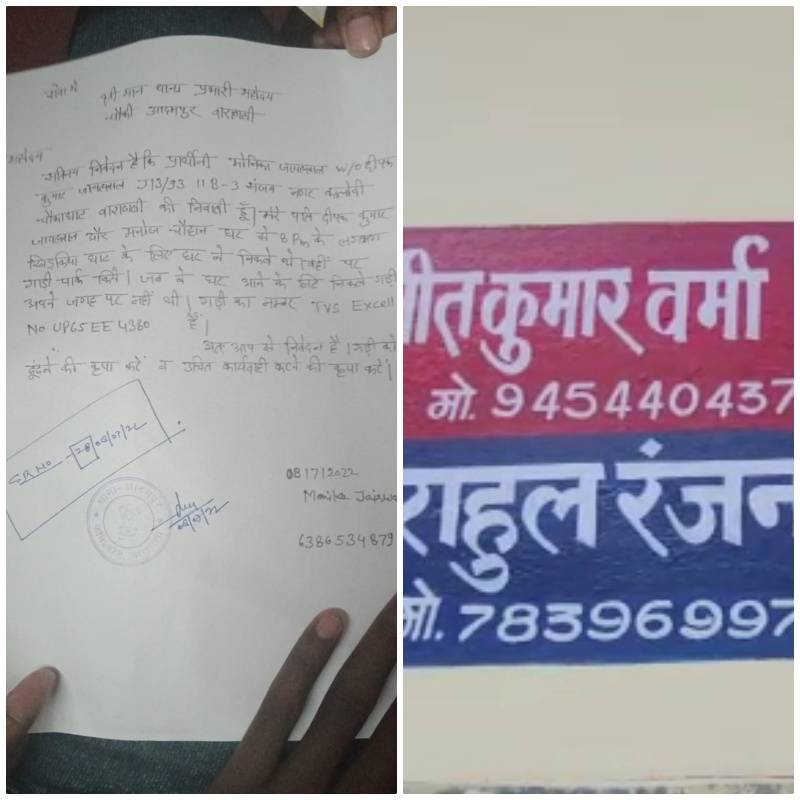 सेवा मे
श्री मान थाना प्रभारी महोदय
चौकी आदमपुर वाराणसी
महोदय
सविनय निवेदन है कि प्रार्थीनी मोनिका जायसवाल W/O दीपक
कुमार जायसवाल J13/93 11 B-3 संजय नगर कालोनी
चौकाघाट वाराणसी की निवासी हूँ। मेरे पति दीपक कुमार
जायसवाल और मनोज चौहान घर से 8 Pm के लगभग
खिड़किया घाट के लिए घर से निकले थे। वहाँ पर
गाड़ी पार्क किये। जब वे घर आने के लिए निकले गाड़ी
अपने जगह पर नहीं थी। गाड़ी का नम्बर TVS Excell
No UP65EE 4380 है।
अतः आप से निवेदन है। गाड़ी को
ढूंढने की कृपा करें व उचित कार्यवाही करने की कृपा करें।
GR NO - 28 08/07/22
08/7/2022
Monika Jaiswa
6386534879
08/07/22
ीत कुमार वर्मा
मो. 945440437
राहुल रंजन
मो. 78396997